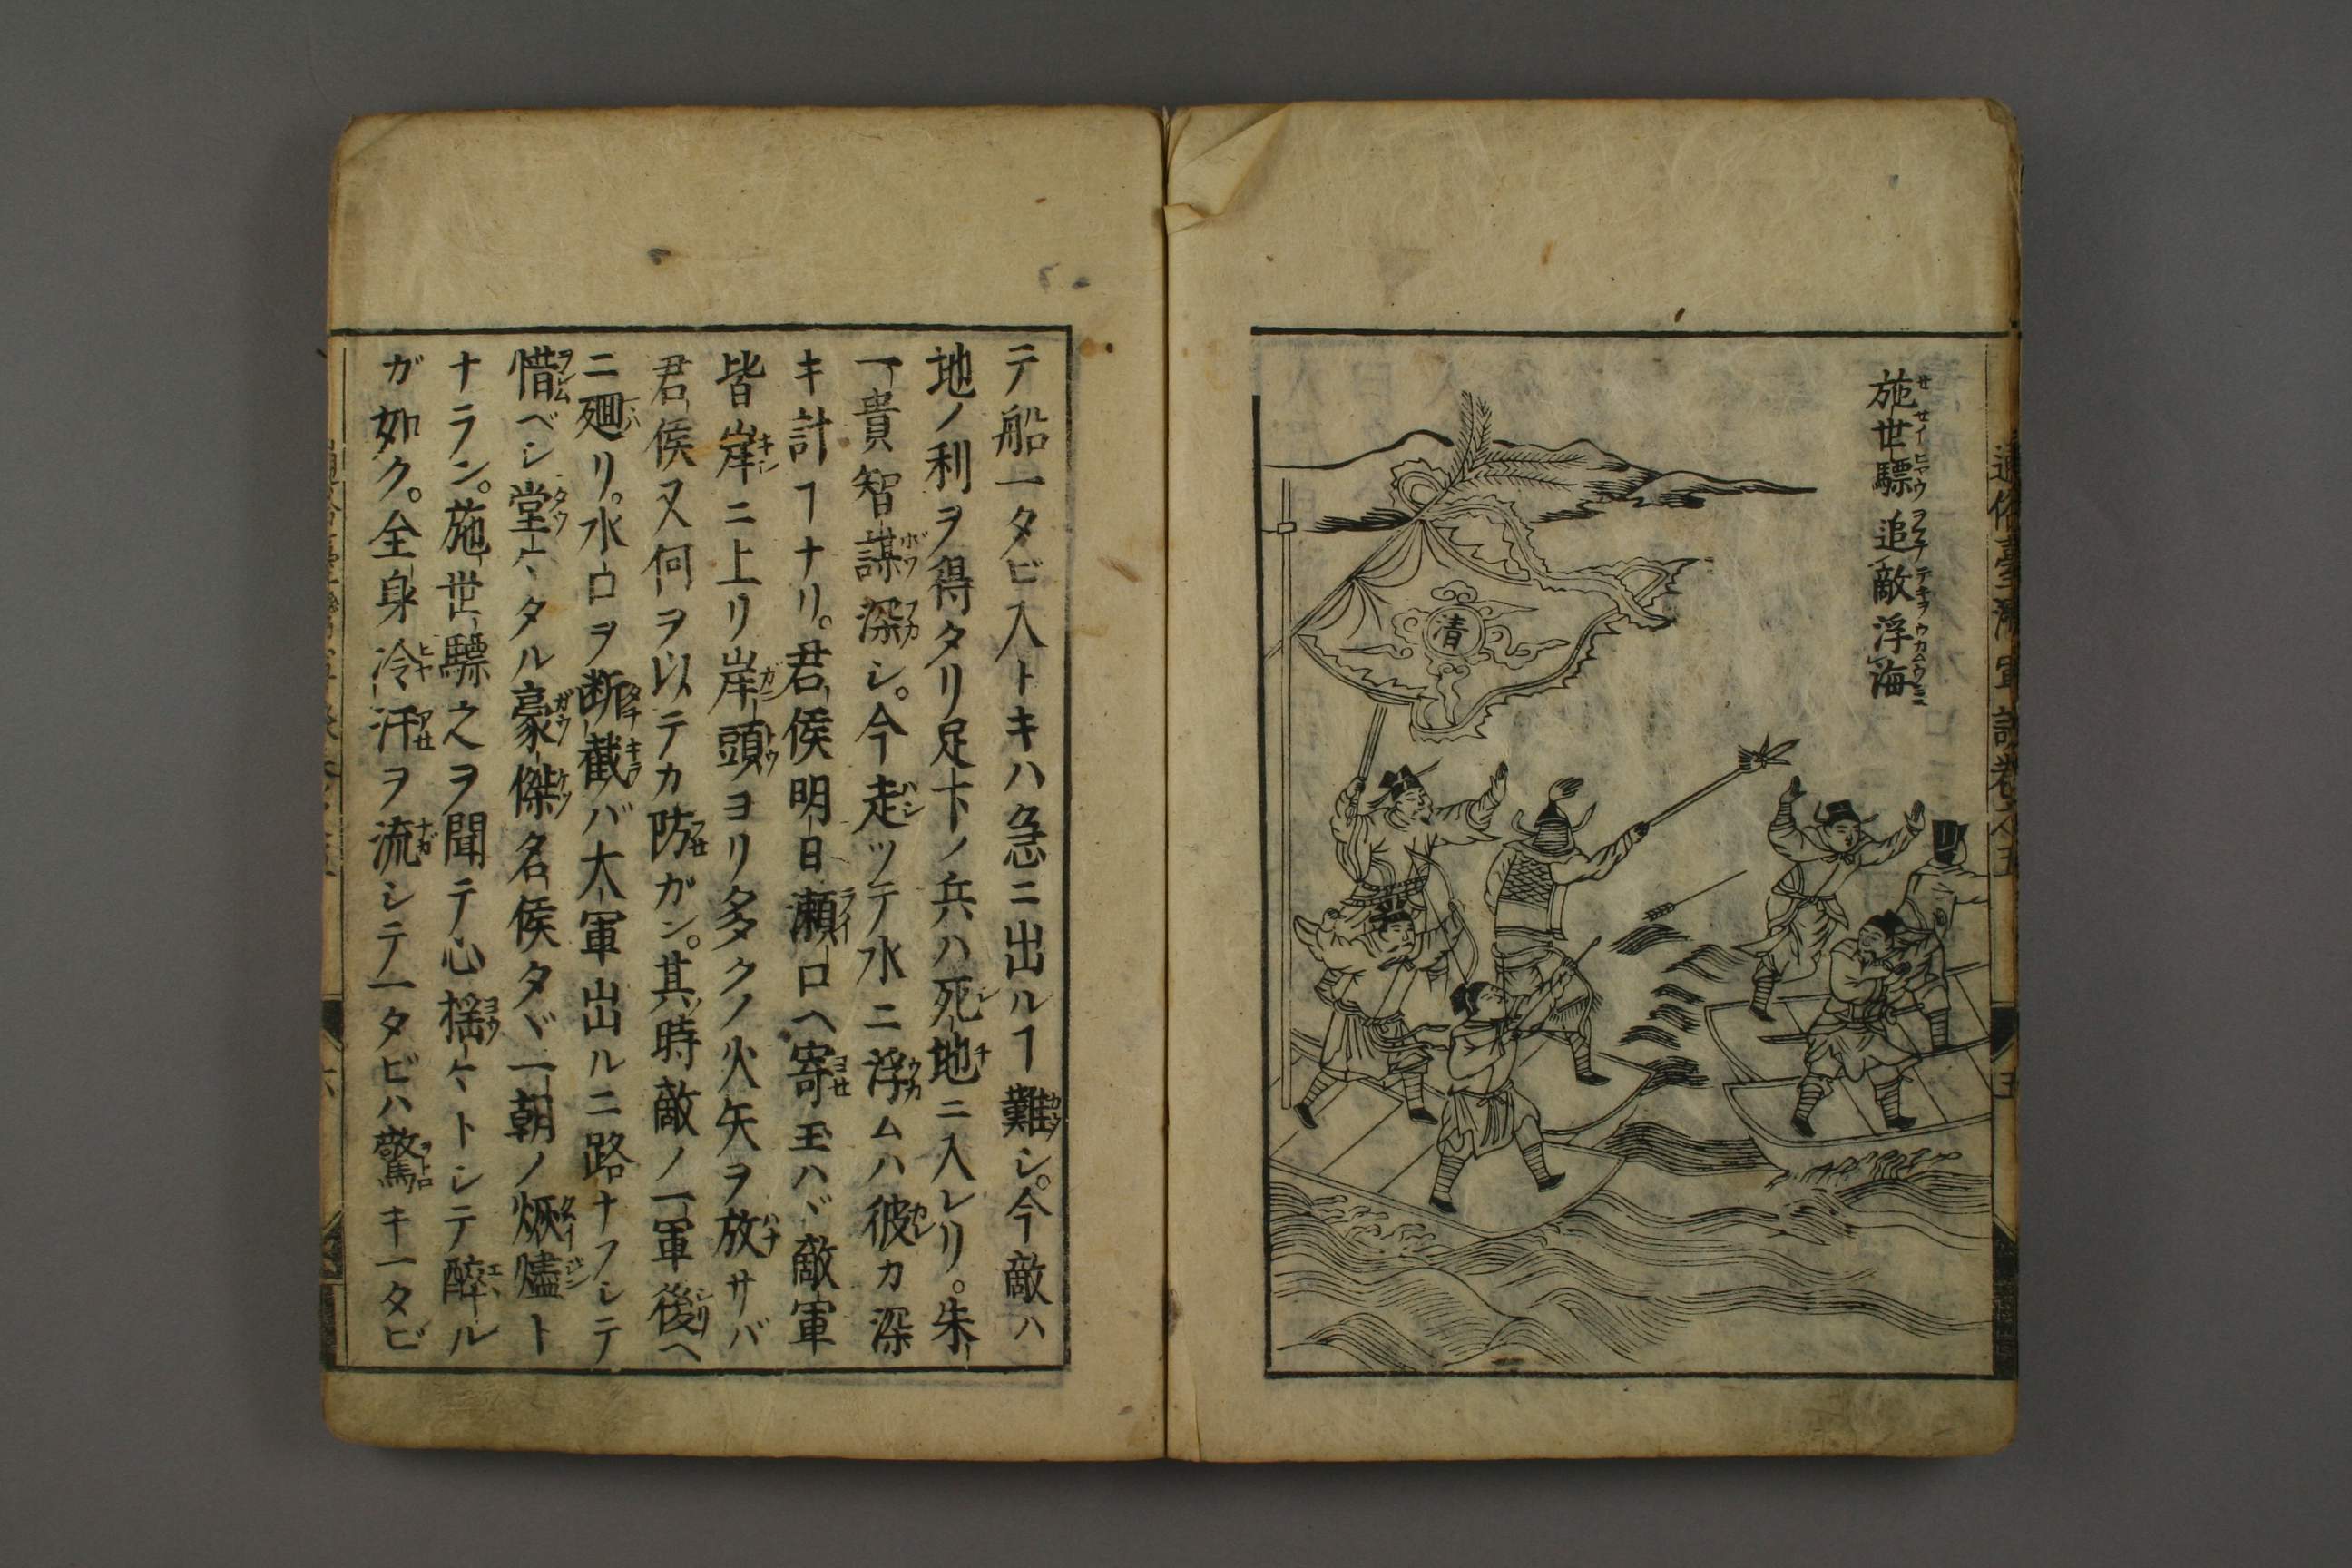 通俗臺湾軍談卷之五
五
施世驃追敵浮海
清
テ船一タビ入トキハ急ニ出ルヿ難シ。今敵ハ
地ノ利ヲ得タリ足下ノ兵ハ死地ニ入レリ。朱
一貴智謀深シ。今走ッテ水ニ浮ムハ彼カ深
キ計ヿナリ。君侯明日瀬口ヘ寄玉ハヾ敵軍
皆岸ニ上リ岸頭ヨリ多クノ火矢ヲ放サバ
君侯又何ヲ以テカ防ガン。其時敵ノ一軍後ヘ
ニ廻リ。水口ヲ断截バ大軍出ルニ路ナフシテ
惜ベシ堂〻タル豪傑名侯タヾ一朝ノ烌燼ト
ナラン。施世驃之ヲ聞テ心揺〻トシテ醉ル
ガ如ク。全身冷汗ヲ流シテ一タビハ驚キ一タビ
六